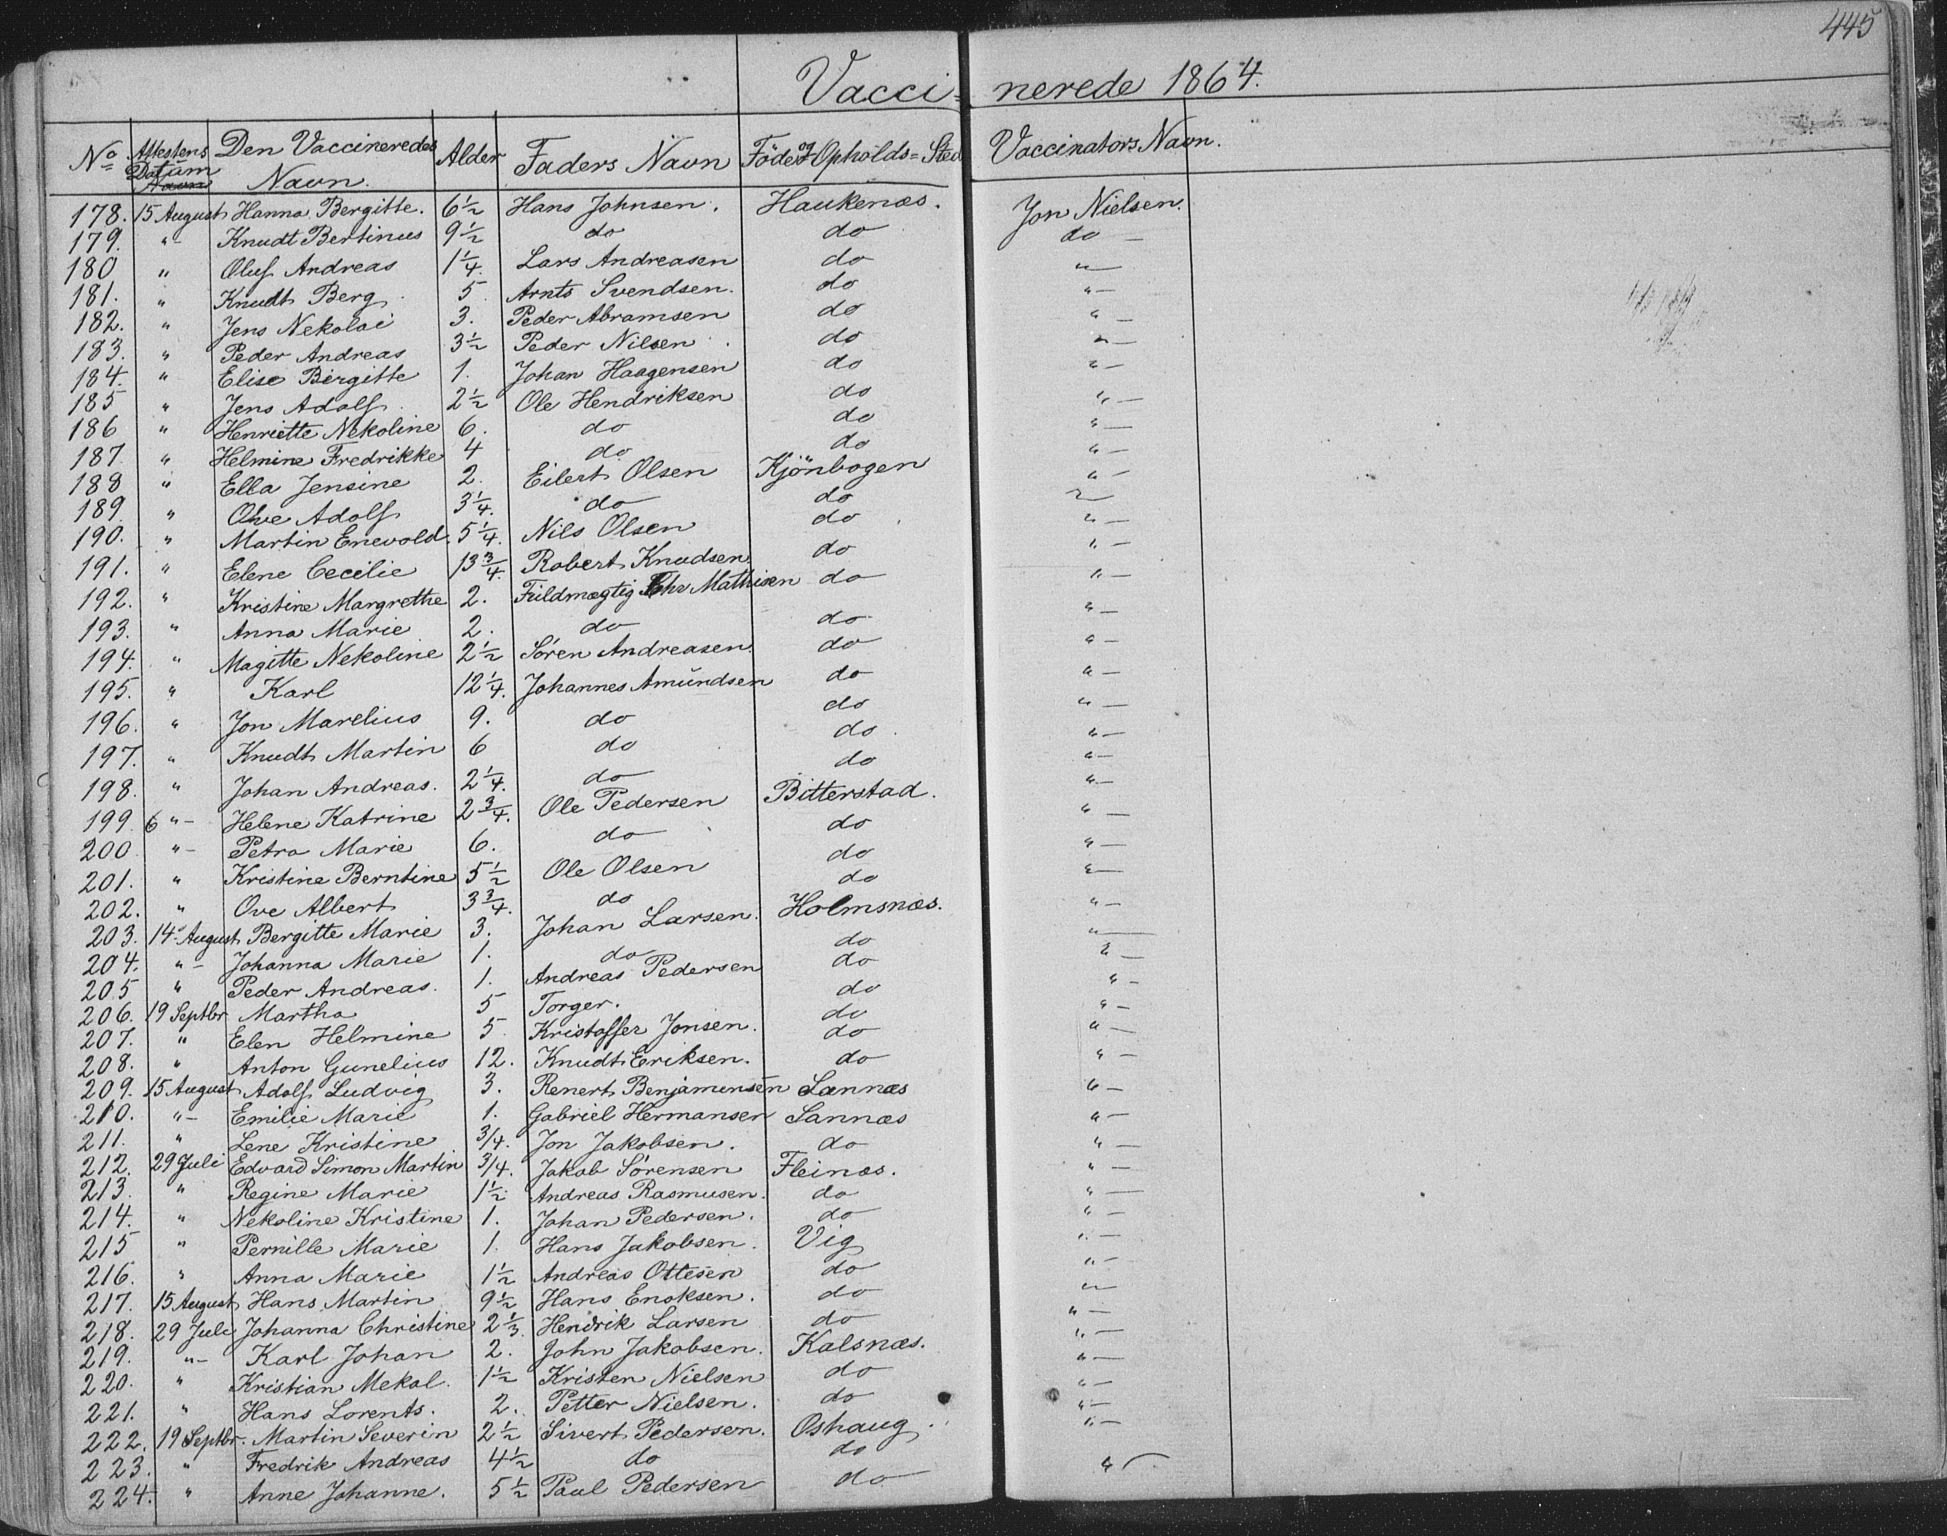 445
Vacci= nerede 1864.
No Attestens Datum Navn Den Vaccineredes Navn. Alder Faders Navn Föde og Opholds=Sted Vaccinators Navn.
178. 15 August Hanna Bergitte. 6½ Hans Johnsen. Haukenæs. Jon Nielsen.
179. " - Knudt Bertinus 9½ do do do -
180 " Oluf Andreas 1¼. Lars Andreasen do " -
181. " Knudt Berg 5 Arnts Svendsen. do " -
182. " Jens Nekolai 3. Peder Abramsen do " -
183. " Peder Andreas 3½ Peder Nilsen. do " -
184. " Elise Birgitte 1. Johan Haagensen do " -
185 " Jens Adolf. 2½ Ole Hendriksen do " -
186 " Henriette Nekoline 6. do do " -
187. " Helmine Fredrikke 4 do do " -
188 " Ella Jensine 2. Eilert Olsen Kjönbogen " -
189. " Ove Adolf 3¼. do do " -
190. " Martin Enevold. 5¼. Nils Olsen do " -
191. " Elene Cecilie 13¾. Robert Knudsen do " -
192. " Kristine Margrethe 2. Fuldmægtig Chr Mathisen do " -
193. " Anna Marie 2. do do " -
194. " Magitte Nekoline 2½ Sören Andreasen do " -
195. " Karl 12¼. Johannes Amundsen do " -
196. " Jon Marelius 9. do do " -
197. " Knudt Martin 6 do do " -
198. " Johan Andreas. 2¼. do do " -
199. 6 " - Helene Katrine 2¾. Ole Pedersen Bitterstad. " -
200 " - Petra Marie 6. do do " -
201. " Kristine Berntine 5½ Ole Olsen do " -
202. " Ove Albert 3¾. do do " -
203. 14. August Bergitte Marie 3. Johan Larsen. Holmsnæs. " -
204. " - Johanna Marie 1. do do " -
205 " Peder Andreas. 1. Andreas Pedersen do " -
206. 19 Septbr Martha 5 Torger. do " -
207. " Elen Helmine 5. Kristoffer Jonsen. do " -
208. " Anton Gunelius 12. Knudt Eriksen. do " -
209. 15 August Adolf Ludvig 3. Renert Benjaminsen Sannæs " -
210. " - Emilie Marie 1. Gabriel Hermansen Sannæs " -
211. " Lene Kristine 3/4. Jon Jakobsen. do " -
212. 29 Juli Edvard Simon Martin 3/4. Jakob Sörensen Fleinæs. " -
213. " Regine Marie 1½. Andreas Rasmusen. do " -
214. " Nekoline Kristine 1. Johan Pedersen. do " -
215 " Pernille Marie 1. Hans Jakobsen. Vig " -
216. " Anna Marie 1½ Andreas Ottesen do " -
217. 15 August Hans Martin 9½ Hans Enoksen. do " -
218. 29 Juli Johanna Christine 2⅓. Hendrik Larsen do " -
219. " - Karl Johan 2. John Jakobsen. Kalsnæs. " -
220. " Kristian Mekal. 1½ Kristen Nielsen do " -
221. " Hans Lorents. 2. Petter Nielsen. do " -
222. 19 Septbr. Martin Severin 2½ Sivert Pedersen. Oshaug " -
223. " Fredrik Andreas 4½ do do " -
224. " Anne Johanne. 5½ Paul Pedersen do